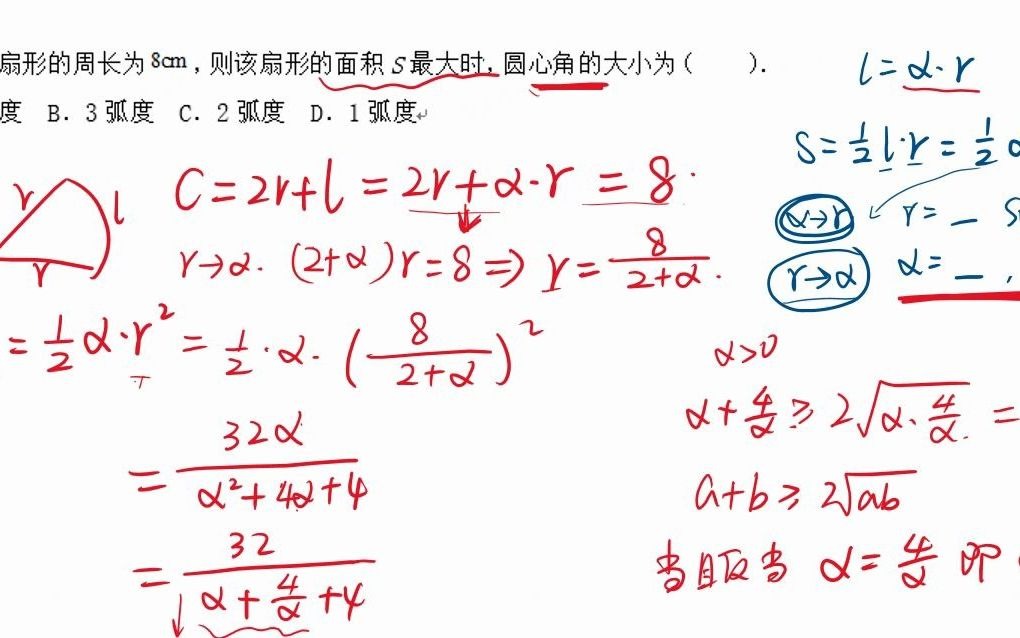 扇形的周长为 8cm，则该扇形的面积 S 最大时，圆心角的大小为（　　）．
度　B．3 弧度　C．2 弧度　D．1 弧度
l = α·r
S = ½ l·r = ½
α→r　r = —
r→α　α = — ,
r　l
r
C = 2r + l = 2r + α·r = 8
r→α. (2+α)r = 8 ⇒ r = 8/(2+α).
= ½ α·r² = ½·α·(8/(2+α))²
= 32α/(α²+4α+4)
= 32/(α + 4/α + 4)
α>0
α + 4/α ≥ 2√(α·4/α) =
a+b ≥ 2√ab
当且仅当 α = 4/α 即